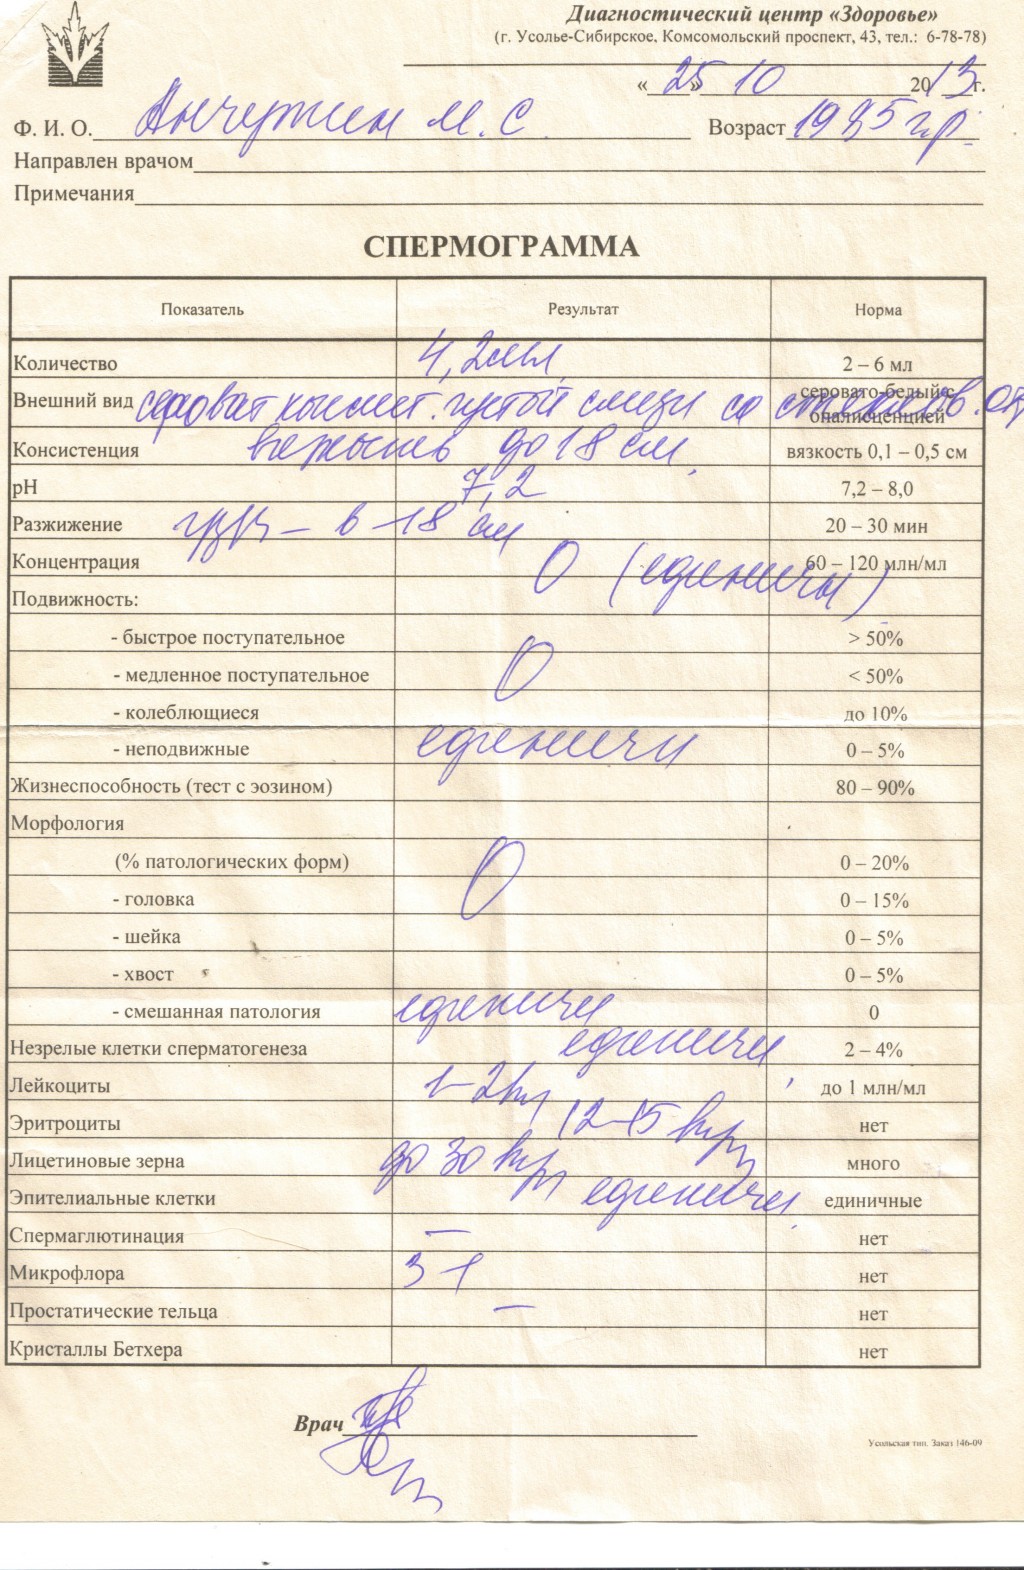 Диагностический центр «Здоровье»
(г. Усолье-Сибирское, Комсомольский проспект, 43, тел.: 6-78-78)
«25» 10 2013 г.
Ф. И. О. М. С. Возраст 1985 г.р.
Направлен врачом
Примечания
СПЕРМОГРАММА
Показатель Результат Норма
Количество 4,2 мл 2 – 6 мл
Внешний вид густой слизи со серовато-белый с опалисценцией
Консистенция до 18 см. вязкость 0,1 – 0,5 см
pH 7,2 7,2 – 8,0
Разжижение – в – 18 см 20 – 30 мин
Концентрация 0 (еденичн) 60 – 120 млн/мл
Подвижность:
- быстрое поступательное > 50%
- медленное поступательное 0 < 50%
- колеблющиеся до 10%
- неподвижные еденичн 0 – 5%
Жизнеспособность (тест с эозином) 80 – 90%
Морфология
(% патологических форм) 0 0 – 20%
- головка 0 – 15%
- шейка 0 – 5%
- хвост 0 – 5%
- смешанная патология еденичн 0
Незрелые клетки сперматогенеза еденичн 2 – 4%
Лейкоциты 1–2 до 1 млн/мл
Эритроциты 12–15 нет
Лицетиновые зерна до 30 много
Эпителиальные клетки еденичн единичные
Спермаглютинация – нет
Микрофлора нет
Простатические тельца – нет
Кристаллы Бетхера нет
Врач
Усольская тип. Заказ 146-09